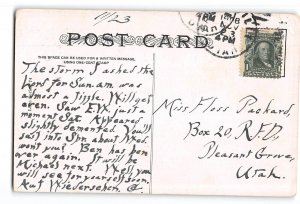 11/23
POST CARD
THIS SPACE CAN BE USED FOR A WRITTEN MESSAGE,
USING ONE-CENT STAMP
The storm I asked the
Lord for Sun. a.m. was
almost a fizzle. Will get
even. Saw E.W. just a
moment Sat. Appeared
slightly demented. You'll
sail into Spn about Wed.
wont you? Ben has been
over again. It will be
Michael next. Well you
will see for yourself soon.
Auf Wiedersehen.
Miss Floss Packard,
Box 20, R.F.D,
Pleasant Grove,
Utah.